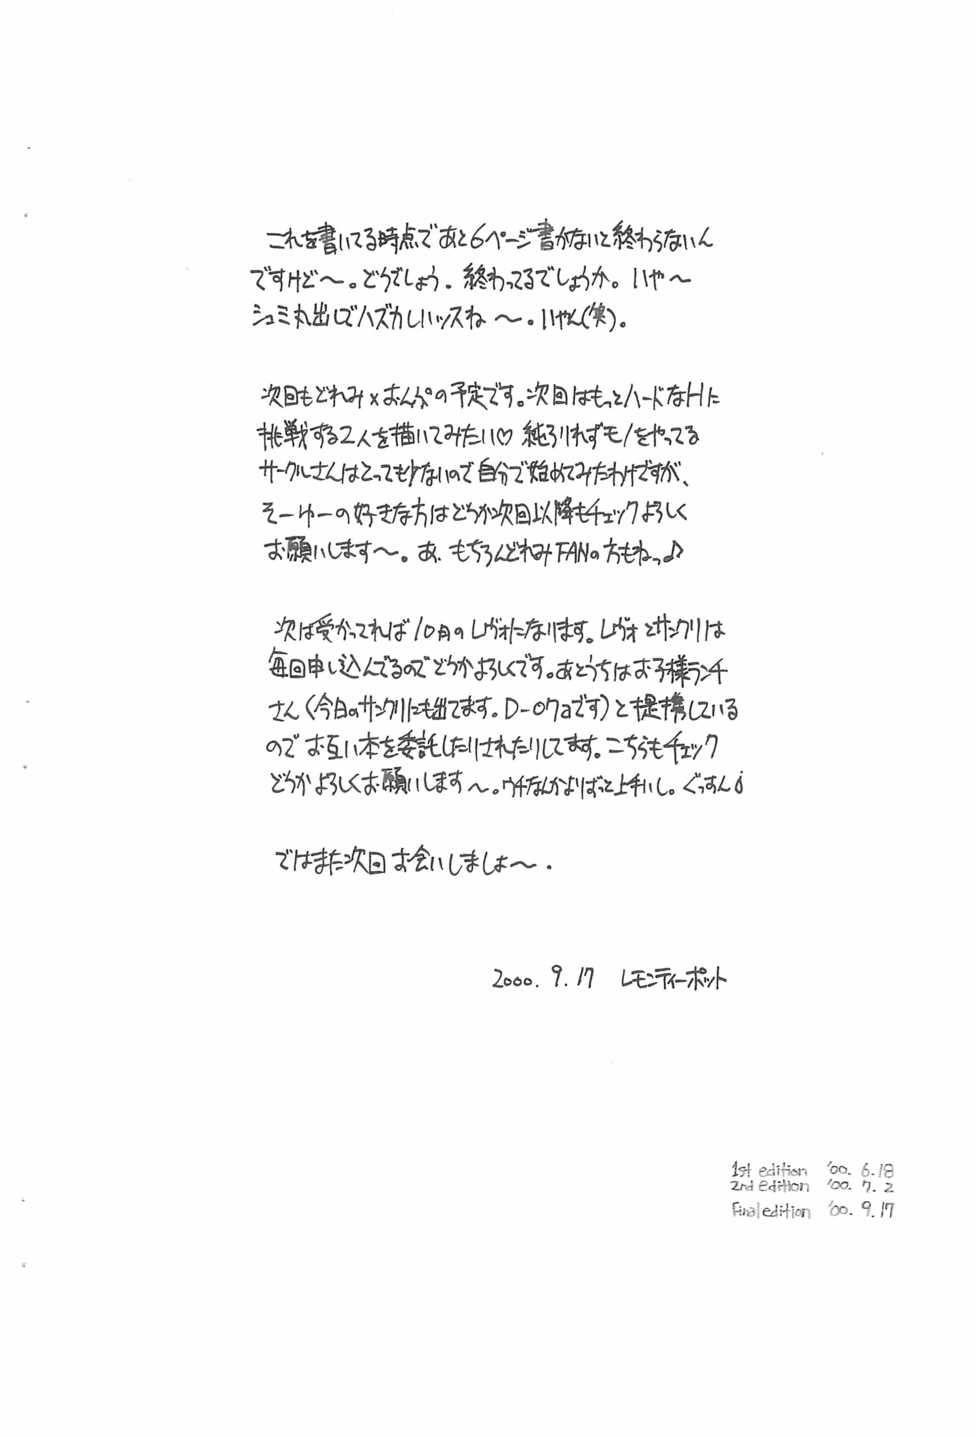 これを書いてる時点であと6ページ書かないと終わらないん
ですけど〜。どうでしょう。終わってるでしょうか。いや〜
シュミ丸出しでハズカしいッスね〜。いやん(笑)。
次回もどれみ×おんぷの予定です。次回はもっとハードなHに
挑戦する2人を描いてみたい♡ 純ろりれずモノをやってる
サークルさんはとっても少ないので自分で始めてみたわけですが、
そーゆーの好きな方はどうか次回以降もチェックよろしく
お願いします〜。あ、もちろんどれみFANの方もねっ♪
次は受かってれば10月のレヴォになります。レヴォとサンクリは
毎回申し込んでるのでどうかよろしくです。あとうちはお子様ランチ
さん(今日のサンクリにも出てます。D-07aです)と提携している
のでお互い本を委託したりされたりしてます。こちらもチェック
どうかよろしくお願いします〜。ウチなんかよりずっと上手いし。ぐっすん
ではまた次回お会いしましょ〜.
2000.9.17 レモンティーポット
1st edition '00.6.18
2nd edition '00.7.2
Final edition '00.9.17